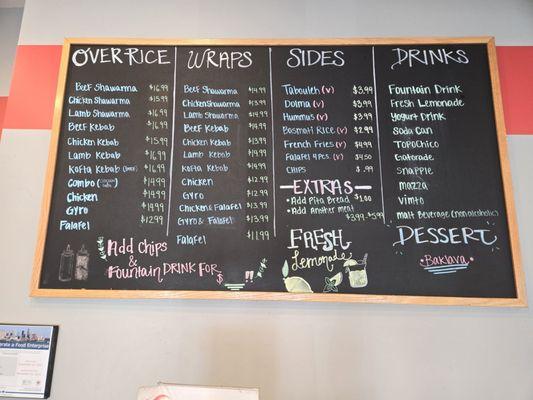 OVER RICE
Beef Shawarma $16.99
Chicken Shawarma $15.99
Lamb Shawarma $16.99
Beef Kebab $16.99
Chicken Kebab $15.99
Lamb Kebab $16.99
Kofta Kebab $16.99
Combo $14.99
Chicken $14.99
Gyro $14.99
Falafel $12.99
Add Chips
&
Fountain DRINK FOR $
WRAPS
Beef Shawarma $14.99
Chicken Shawarma $13.99
Lamb Shawarma $14.99
Beef Kebab $14.99
Chicken Kebab $13.99
Lamb Kebab $14.99
Kofta Kebab $14.99
Chicken $12.99
Gyro $12.99
Chicken & Falafel $13.99
Gyro & Falafel $13.99
Falafel $11.99
SIDES
Tabouleh (v) $3.99
Dolma (v) $3.99
Hummus (v) $3.99
Basmati Rice (v) $2.99
French Fries (v) $4.99
Falafel 4 pcs. (v) $4.50
CHIPS $.99
EXTRAS
• Add Pita Bread $1.00
• Add Another meat
$3.99-5.99
FRESH
Lemonade
DRINKS
Fountain Drink
Fresh Lemonade
Yogurt Drink
Soda Can
TopoChico
Gatorade
Snapple
mazza
vimto
malt Beverage (nonalcoholic)
DESSERT
•Baklava•
erate a Food Enterprise